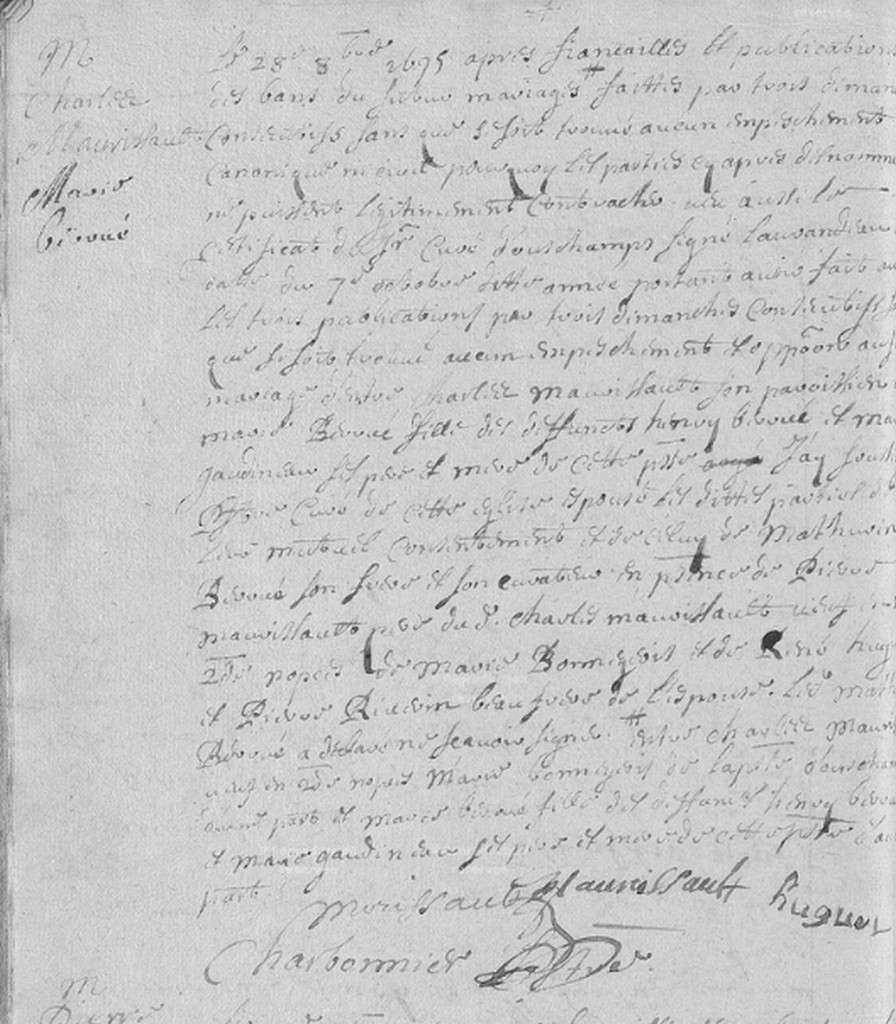 M
Charles
Mauvissault
Marie
béroué
Le 28e 8bre 1695 apres fiançailles et publications
des bans du futur mariage # faittes par trois diman
consecutifs sans que se soit trouvé aucun enpeschement
canonique ni civil pourquoy les parties cy apres desnomme
ne puissent legitimement contracter veu aussi le
certificat de Sr Curé d'ouschamps signé
datté du 7e octobre ditte année portant avoir fait au
les trois publications par trois dimanches consecutifs
que se soit trouvé aucun enpeschement et oppõon au
mariage d'entre Charles mauvissault son paroissien
marie Béroué fille des deffuncts henry béroué et ma
gaudineau ses pere et mere de cette psse J'ay
Curé de cette eglise espousé les dittes parties de
leur mutuel consentement et de celuy de Mathurin
Béroué son frere et son curateur en psence de Pierre
mauvissault pere du d. Charles mauvissault veuf en
2de nopces de Marie et de René hug
et Pierre beau frere de l'espouse. Led. Math
Béroué a declaré ne sçavoir signer. # entre Charles Mauvi
veuf en 2de nopces Marie de la psse d'ouscham
d'une part et marie béroué fille des deffuncts henry bérou
et marie gaudineau ses pere et mere de cette psse d'au
part
morissault Mauvissault huguet
Charbonnier
M
Pierre